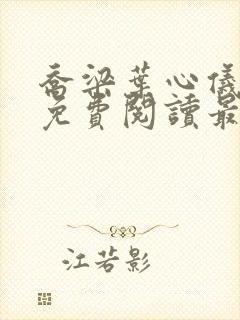 喬梁葉心儀
免費閱讀最
江若影